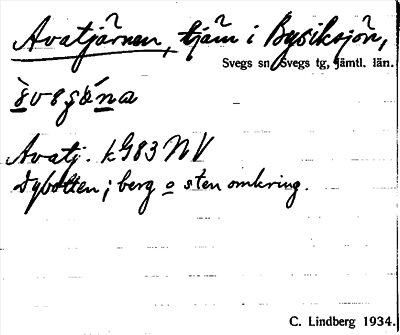 Avatjärnen, tjärn i Bysiksjön,
Svegs sn Svegs tg, Jämtl. län.
Avatj. kG83 NV
Dybotten; berg o sten omkring.
C. Lindberg 1934.